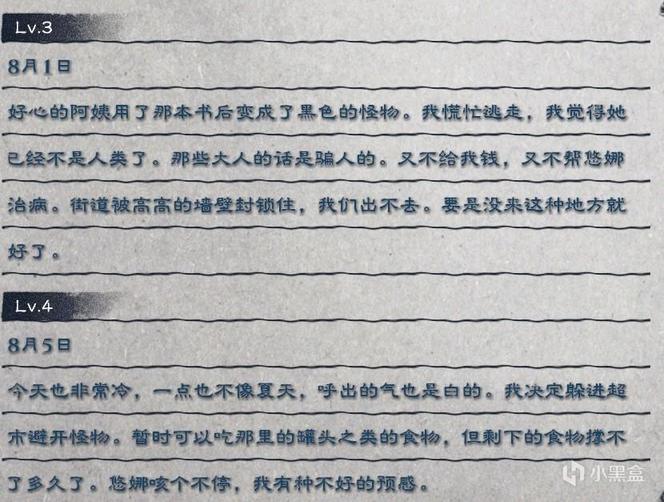 Lv.3
8月1日
好心的阿姨用了那本书后变成了黑色的怪物。我慌忙逃走，我觉得她
已经不是人类了。那些大人的话是骗人的。又不给我钱，又不帮悠娜
治病。街道被高高的墙壁封锁住，我们出不去。要是没来这种地方就
好了。
Lv.4
8月5日
今天也非常冷，一点也不像夏天，呼出的气也是白的。我决定躲进超
市避开怪物。暂时可以吃那里的罐头之类的食物，但剩下的食物撑不
了多久了。悠娜咳个不停，我有种不好的预感。
小黑盒